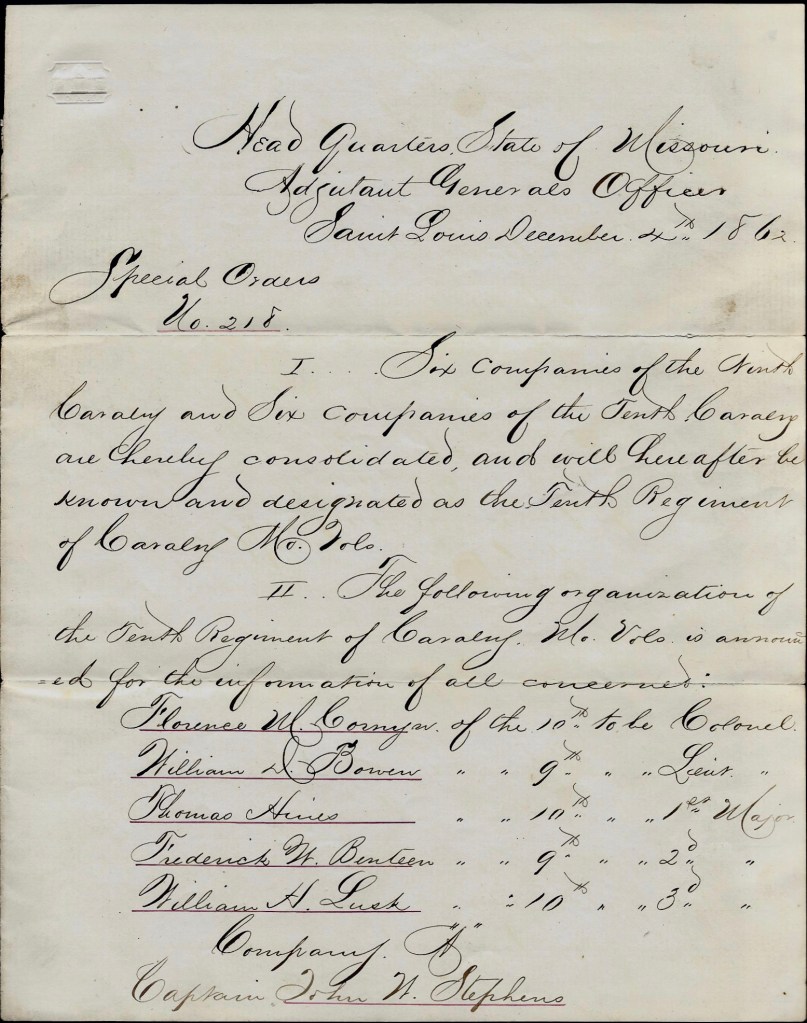 Head Quarters, State of Missouri.
Adjutant Generals Office
Saint Louis December 4th 1862.
Special Orders
No. 218.
I.... Six companies of the Ninth
Cavalry and Six companies of the Tenth Cavalry
are hereby consolidated, and will hereafter be
known and designated as the Tenth Regiment
of Cavalry Mo. Vols.
II.. The following organization of
the Tenth Regiment of Cavalry. Mo. Vols. is announc
=ed for the information of all concerned:
Florence M. Cornyn. of the 10th to be Colonel.
William D. Bowen " " 9th " " Lieut. "
Thomas Hines " " 10th " " 1st Major.
Frederick W. Benteen " " 9th " " 2d "
William H. Lusk " " 10th " " 3d "
Company. "A"
Captain John W. Stephens